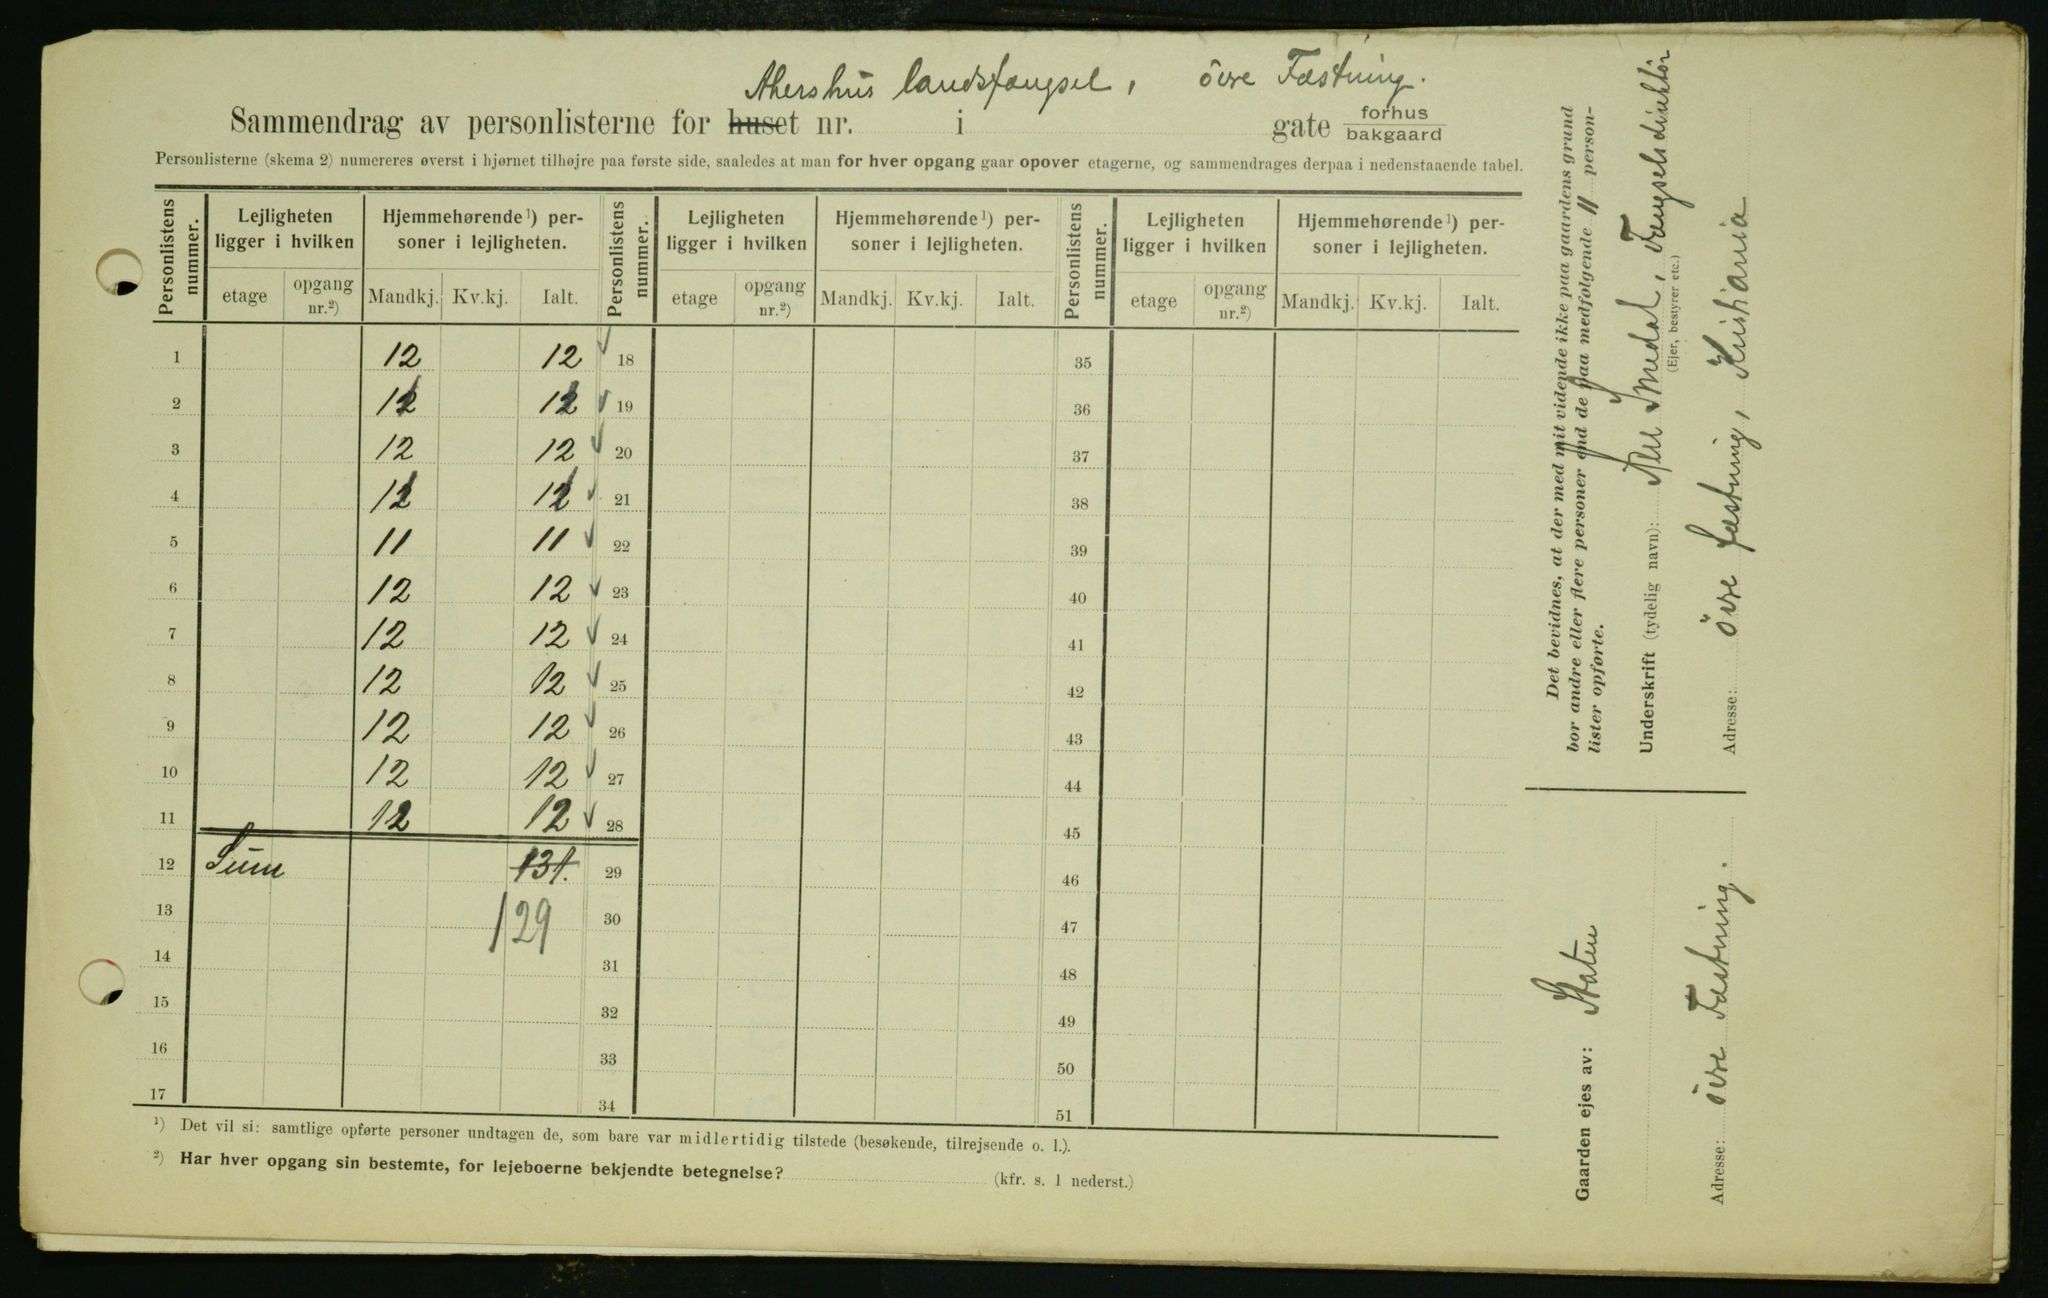 Akershus landsfængsel, öire Fæstning.
Sammendrag av personlisterne for huset nr. i gate forhus bakgaard
Personlisterne (skema 2) numereres øverst i hjørnet tilhøjre paa første side, saaledes at man for hver opgang gaar opover etagerne, og sammendrages derpaa i nedenstaaende tabel.
Personlistens nummer. Lejligheten ligger i hvilken Hjemmehørende 1) personer i lejligheten. Personlistens nummer. Lejligheten ligger i hvilken Hjemmehørende 1) personer i lejligheten. Personlistens nummer. Lejligheten ligger i hvilken Hjemmehørende 1) personer i lejligheten.
etage opgang nr.2) Mandkj. Kv.kj. Ialt. etage opgang nr.2) Mandkj. Kv.kj. Ialt. etage opgang nr.2) Mandkj. Kv.kj. Ialt.
1 12 12 18 35
2 11 11 19 36
3 12 12 20 37
4 11 11 21 38
5 11 11 22 39
6 12 12 23 40
7 12 12 24 41
8 12 12 25 42
9 12 12 26 43
10 12 12 27 44
11 12 12 28 45
12 Sum 131. 29 46
13 129 30 47
14 31 48
15 32 49
16 33 50
17 34 51
1) Det vil si: samtlige opførte personer undtagen de, som bare var midlertidig tilstede (besøkende, tilrejsende o. l.).
2) Har hver opgang sin bestemte, for lejeboerne bekjendte betegnelse? (kfr. s. 1 nederst.)
Det bevidnes, at der med mit vidende ikke paa gaardens grund
bor andre eller flere personer end de paa medfølgende 11 person-
lister opførte.
Underskrift (tydelig navn): Imedal, Fængselsdirektör
(Ejer, bestyrer etc.)
Adresse: öire fæstning, Kristiania
Gaarden ejes av: Staten
Adresse: öire Fæstning.